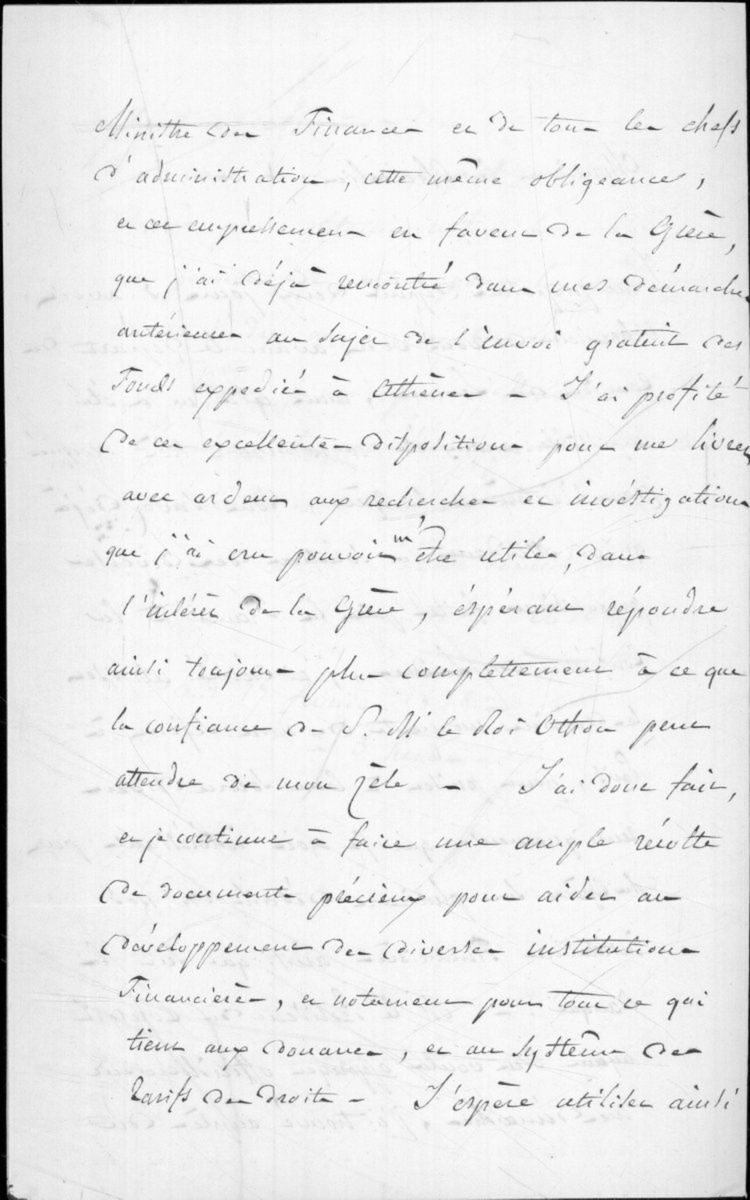 Ministre des Finances et de tous les chefs
d'administration, cette même obligeance,
et cet empressement en faveur de la Grèce,
que j'ai déjà rencontré dans mes démarches
antérieures au sujet de l'envoi gratuit des
Fonds expédiés à Athènes – J'ai profité
de ces excellentes dispositions pour me livrer
avec ardeur aux recherches et investigations
que j'ai cru pouvoir m'être utiles, dans
l'intérêt de la Grèce, éspérant répondre
ainsi toujours plus complettement à ce que
la confiance de S. M. le Roi Othon peut
attendre de mon zèle – J'ai donc fait,
et je continue à faire une ample récolte
de documents précieux pour aider au
développement des diverses institutions
Financières, et notament pour tout ce qui
tient aux douanes, et au système des
tarifs des droits – J'espère utiliser ainsi